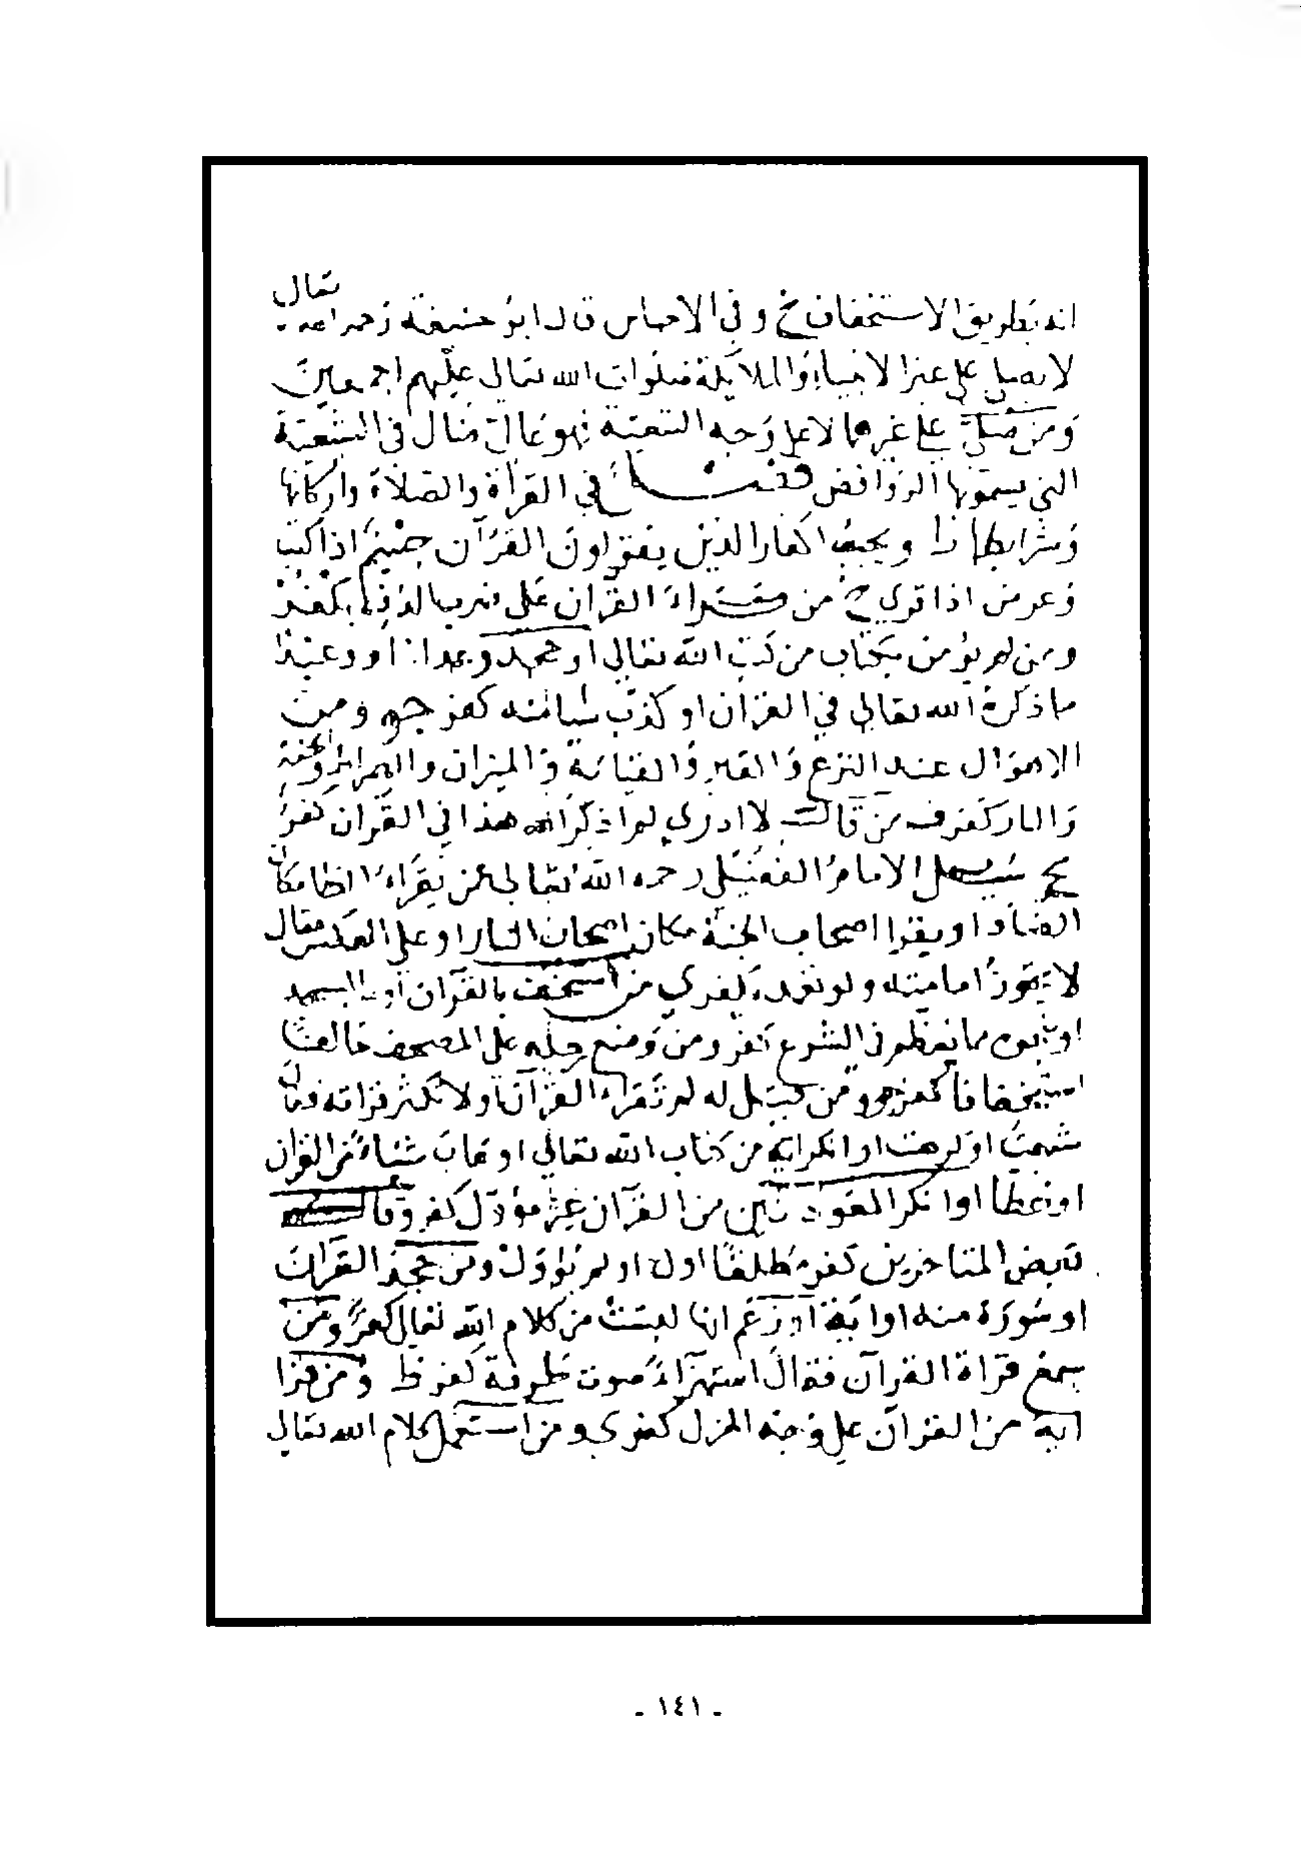 انه بطريق الاستخفاف وفي الاجناس قال ابو حنيفة رحمه الله تعالى
لا يصلى على غير الانبياء والملائكة صلوات الله تعالى عليهم اجمعين
ومن صلى على غيرهما لا على وجه التبعية فهو غال في الشيعة
التي يسمونها الروافض فصل في القرأة والصلاة واركانها
وشرايطها ويجب اكفار الذين يقولون القرآن جسم اذا كتب
وعرض اذا قرئ من قرأ القرآن على ضرب الدف يكفر
ومن لم يؤمن بكتاب من كتب الله تعالى او جحد وعدا او وعيدا
ما ذكره الله تعالى في القرآن او كذب شيا منه كفر ومن
الاهوال عند النزع والقبر والقيامة والميزان والصراط والجنة
والنار كفر من قال لا ادري لم ذكر الله هذا في القرآن كفر
سئل الامام الفضلي رحمه الله تعالى عمن يقراء الظا مكان
الضاد او يقرا اصحاب الجنة مكان اصحاب النار او على العكس فقال
لا تجوز امامته ولو تعمد يكفر من استخف بالقرآن او بالمسجد
او بنحوه مما يعظم في الشرع كفر ومن وضع رجله على المصحف حالفا
استخفافا كفر ومن قيل له لم تقراء القرآن او لا تكثر قراته فقال
شبعت او كرهت او انكر اية من كتاب الله تعالى او عاب شيئا من القرآن
او خطا او انكر المعوذتين من القرآن غير مؤول كفر وقال
بعض المتاخرين كفر مطلقا اول او لم يؤول ومن جحد القرآن
او سورة منه او اية او زعم انها ليست من كلام الله تعالى كفر ومن
سمع قراة القرآن فقال استهزاء صوت طرفة كفر ومن قرا
اية من القرآن على وجه الهزل كفر ومن استعمل كلام الله تعالى
- ١٤١ -